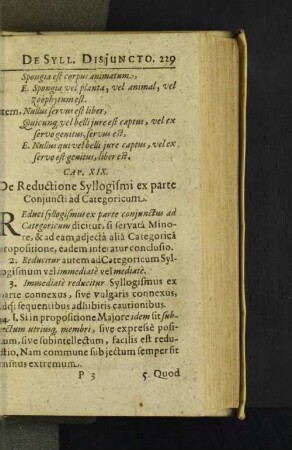 DE SYLL. DISJUNCTO. 229
Spongia est corpus animatum.
E. Spongia vel planta, vel animal, vel
zoophytum est.
tem, Nullus servus est liber,
Quicunq; vel belli jure est captus, vel ex
servo genitus, servus est.
E. Nullus qui vel belli jure captus, vel ex
servo est genitus, liber est.
CAP. XIX.
De Reductione Syllogismi ex parte
Conjuncti ad Categoricum.
REduci syllogismus ex parte conjunctus ad
Categoricum dicitur, si servatâ Mino-
re, & ad eam adjectâ aliâ Categoricâ
propositione, eadem infertur conclusio.
2. Reducitur autem ad Categoricum Syl-
logismum vel immediatè vel mediatè.
3. Immediatè reducitur Syllogismus ex
parte connexus, sive vulgaris connexus,
sequentibus adhibitis cautionibus.
4. I. Si in propositione Majore idem sit sub-
jectum utriusq; membri, sive expressè posi-
tum, sive subintellectum, facilis est redu-
ctio, Nam commune subjectum semper sit
minus extremum.
P 3 5. Quod